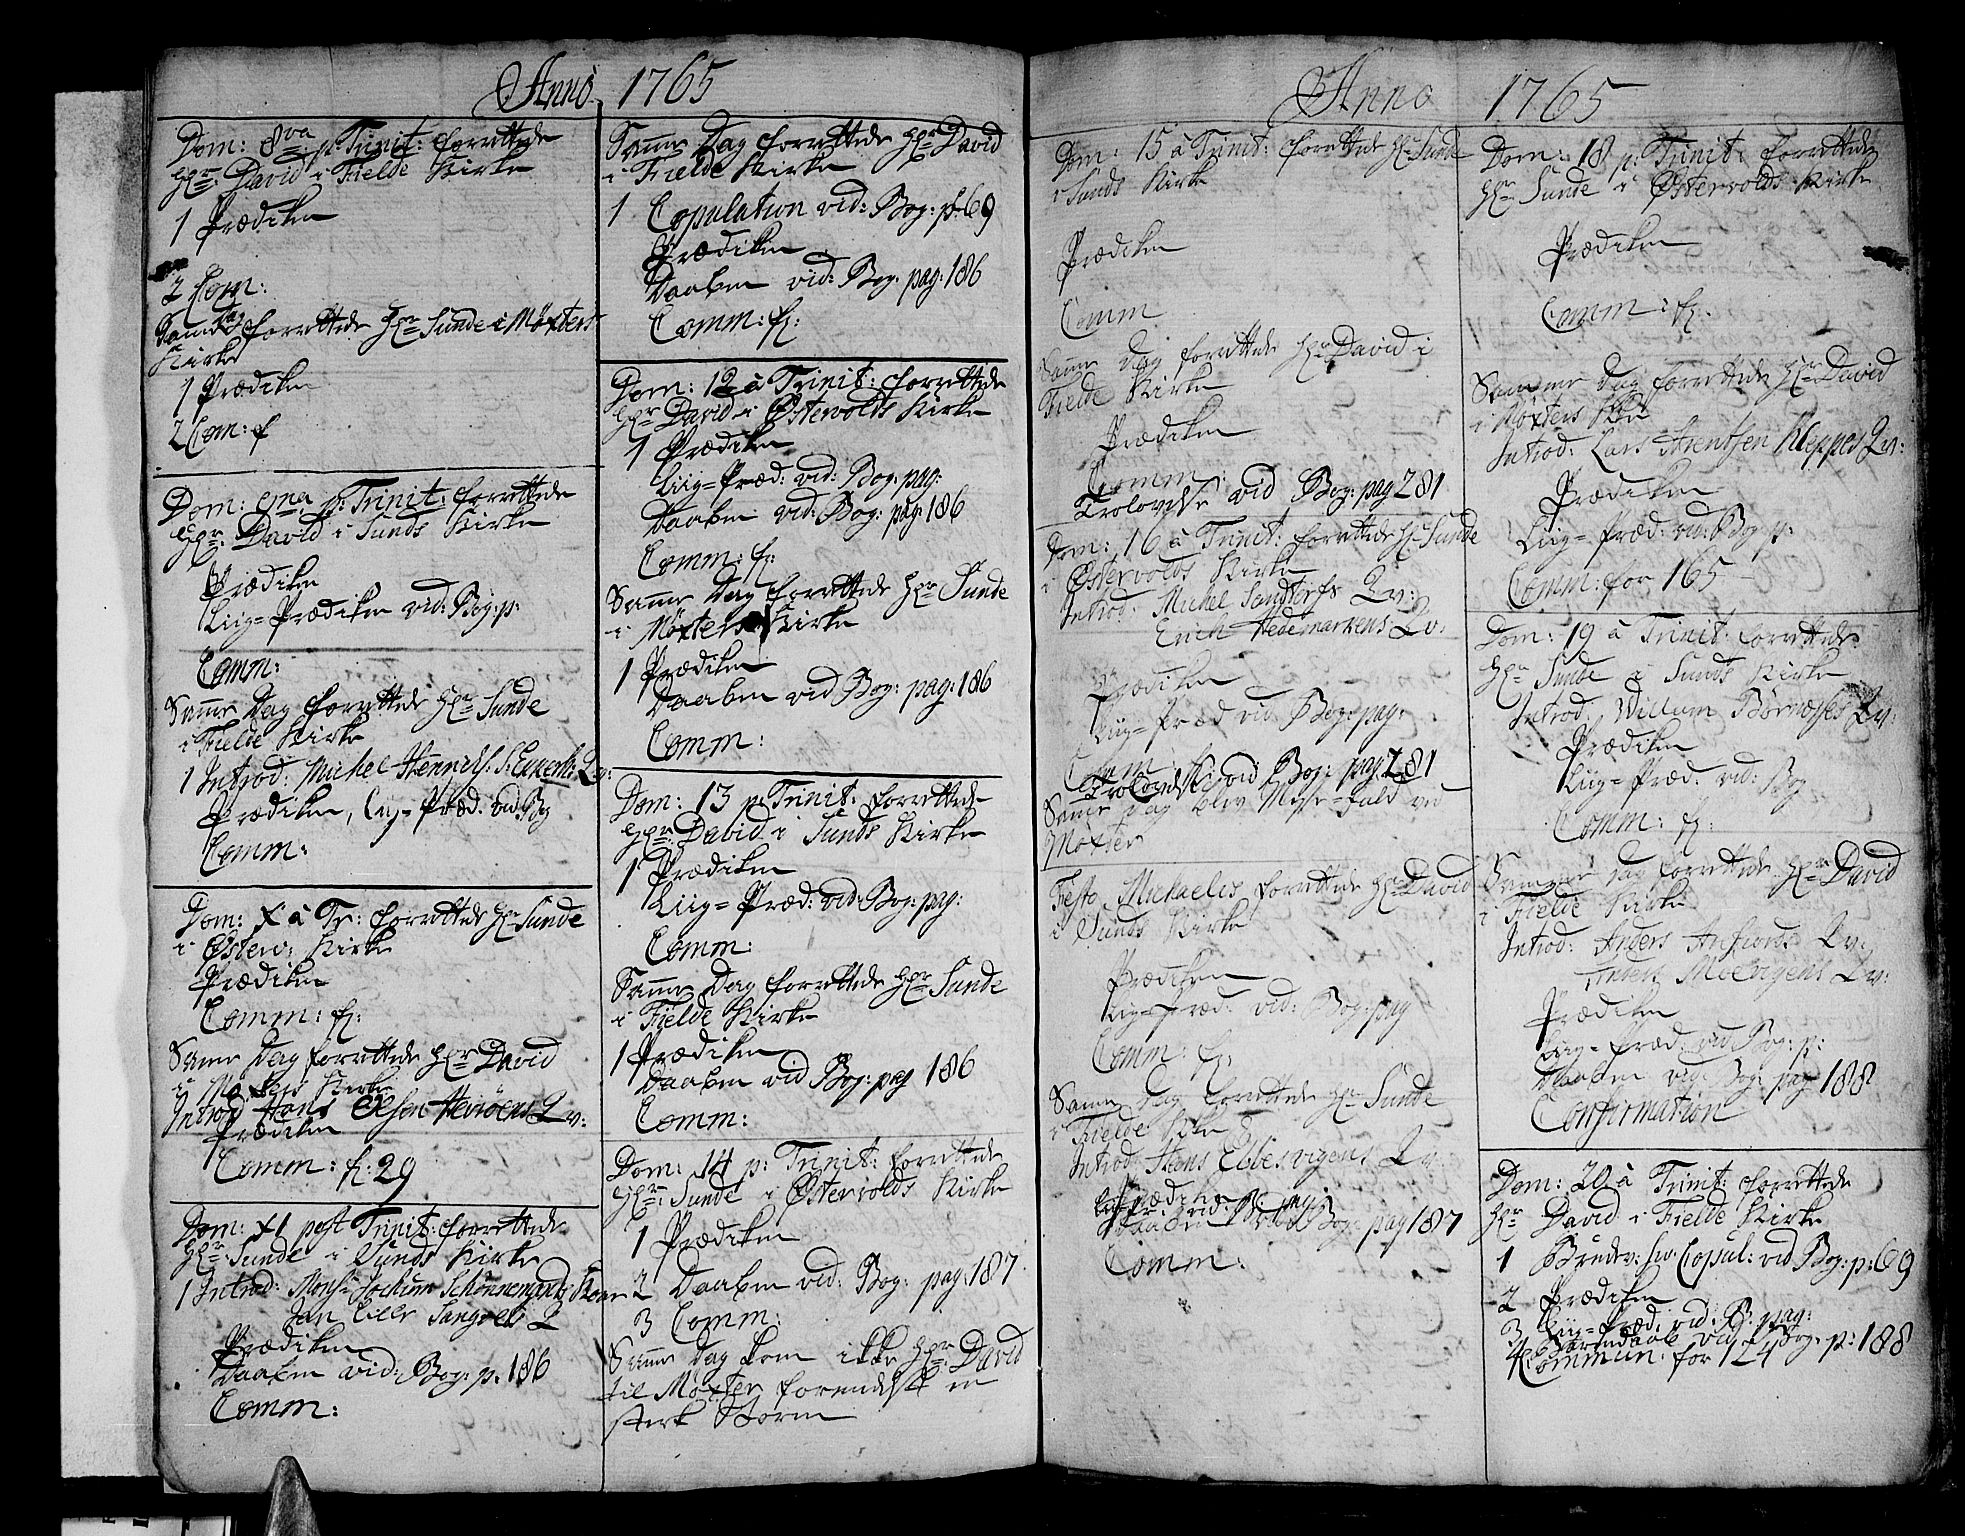 Anno 1765
Dom: 8va p. Trinit: forrettede
Hr: David i Fielde Kirke
1 Prædiken
2 Com:
Samme Dag forrettede Hr Sunde i Møxters
Kirke
1 Prædiken
2 Com: f
Dom: 9na p. Trinit: forrettede
Hr: David i Sunds Kirke
Prædiken
Liig=Prædiken vid: Bog: p:
Comm:
Samme Dag forrettede Hr Sunde
i Fielde Kirke
1 Introd: Michel Hennichs: S: Qv:
Prædiken, Liig=Præd: vid: Bog
Comm:
Dom: X à Tr: forrettede Hr Sunde
i Østerv: Kirke
Prædiken
Comm: f:
Samme Dag forrettede Hr David
i Møxters Kirke
Introd Hans Olsen Qv:
Prædiken
Comm: f: 29
Dom: XI post Trinit: forrettede
Hr: Sunde i Sunds Kirke
1 Introd: Monsr Jochum Schønnemans Kone
Jan Lille Sangolts Q
Prædiken
Daaben vid: Bog: p: 186
Comm:
Samme Dag forrettede Hr David
i Fielde Kirke
1 Copulation vid: Bog: p 69
Prædiken
Daaben vid: Bog: pag: 186
Comm: f:
Dom: 12 à Trinit: forrettede
Hr David i Østervolds Kirke
1 Prædiken
Liig=Præd: vid: Bog: pag:
Daaben vid: Bog: pag: 186
Comm: f:
Samme Dag forrettede Hr Sunde
i Møxters Kirke
1 Prædiken
Daaben vid Bog: pag: 186
Comm:
Dom: 13 p. Trinit: forrettede
Hr: David i Sunds Kirke
1 Prædiken
Liig=Præd: vid: Bog: pag:
Comm:
Samme Dag forrettede Hr Sunde
i Fielde Kirke
1 Prædiken
Daaben vid Bog: pag 186
Comm:
Dom: 14 p: Trinit: forrettede
Hr: Sunde i Østervolds Kirke
1 Prædiken
2 Daaben vid: Bog: pag: 187.
3 Comm:
Samme Dag kom ikke Hr: David
til Møxter formedelst en
sterk Storm
Anno 1765
Dom: 15 à Trinit: forrettede Hr Sunde
i Sunds Kirke
Prædiken
Comm
Samme Dag forrettede Hr David i
Fielde Kirke
Prædiken
Comm:
Trolovelse vid Bog: pag 281
Dom: 16 à Trinit: forrettede Hr Sunde
i Østervolds Kirke
Introd: Michel Sandtorfs Qv:
Erich Hedemarkens Qv:
Prædiken
Liig=Præd vid: Bog: pag:
Comm:
Trolovelse vid Bog: pag 281
Samme Dag blev Messe=Fald ved
Møxter
Festo Michaelis forrettede Hr David
i Sunds Kirke
Prædiken
Liig=Præd: vid: Bog: pag
Comm: f:
Samme Dag forrettede Hr Sunde
i Fielde Kirke
Introd: Hans Ebbesvigens Qv:
Prædiken
Daaben vid Bog: pag 187
Comm:
Dom: 18 p: Trinit: forrettede
Hr Sunde i Østervolds Kirke
Prædiken
Comm: f:
Samme Dag forrettede Hr David
i Møxters Kirke
Introd: Lars Arentsen Kleppes Qv:
Prædiken
Liig=Præd: vid: Bog p:
Comm: for 165
Dom: 19 à Trinit: forrettede
Hr Sunde i Sunds Kirke
Introd Willum Børnæsses Qv:
Prædiken
Liig=Præd: vid: Bog
Comm: f:
Samme Dag forrettede Hr David
i Fielde Kirke
Introd: Anders Qv:
Anders Moevigens Qv:
Prædiken
Liig=Præd: vid Bog: p:
Daaben vid: Bog: pag 188
Confirmation
Dom: 20 à Trinit: forrettede
Hr David i Fielde Kirke
1 Brudev: Copul: vid Bog: p: 69
2 Prædiken
3 Liig=Præd: vid: B: pag:
4 Barnedaab vid Bog: p: 188
Commun: for 124